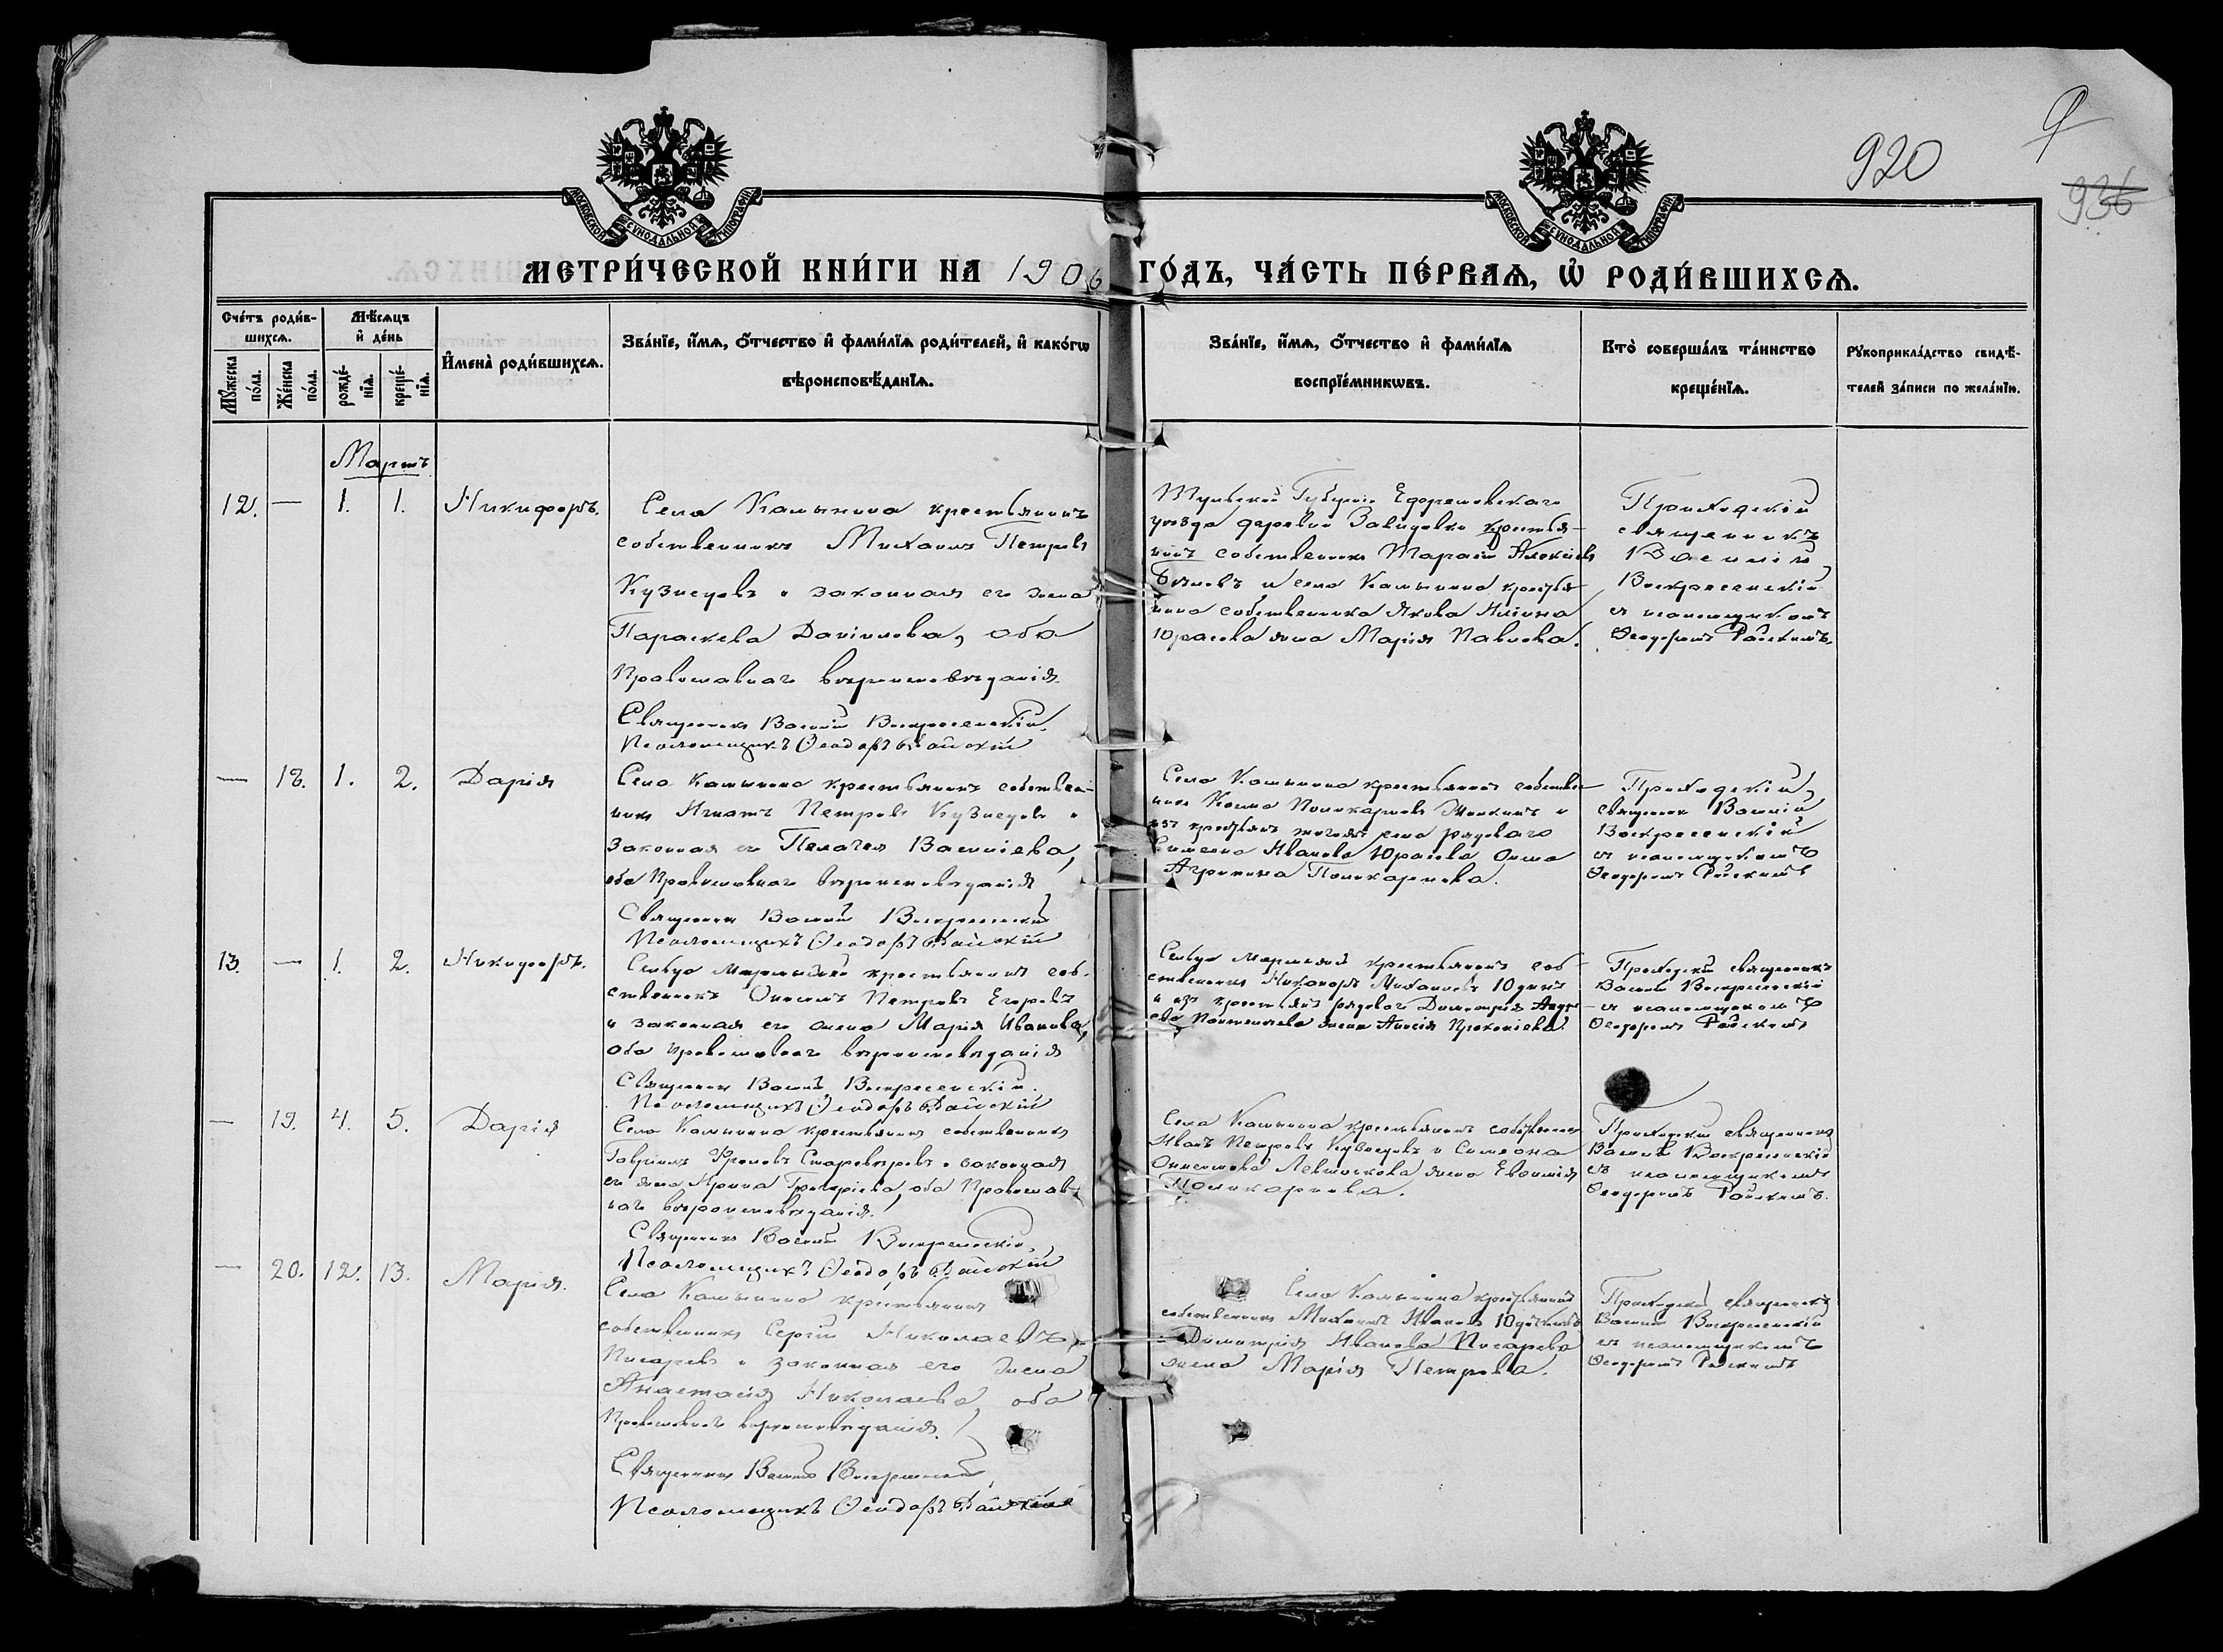 920
9
936
МОСКОВСКОЙ СѴНОДАЛЬНОЙ ТИПОГРАФІИ
МОСКОВСКОЙ СѴНОДАЛЬНОЙ ТИПОГРАФІИ
МЕТРИ́ЧЕСКОЙ КНИ́ГИ НА 1906 ГО́ДЪ, ЧА́СТЬ ПЕ́РВАѦ, Ѡ҆ РОДИ́ВШИХСѦ.
Сче́тъ роди́в-
шихсѧ.
Мѣ́сѧцъ
и҆ де́нь
Мꙋ́жеска по́ла.
Же́нска по́ла.
рожде́-нїѧ.
креще́-нїѧ.
И҆мена̀ роди́вшихсѧ.
Зва́нїе, и҆́мѧ, ѻ҆́тчество и҆ фами́лїѧ роди́телей, и҆ како́гѡ
вѣроисповѣ́данїѧ.
Зва́нїе, и҆́мѧ, ѻ҆́тчество и҆ фами́лїѧ
воспрїе́мникѡвъ.
Кто̀ соверша́лъ та́инство
креще́нїѧ.
Рꙋкоприкла́дство свидѣ́-
телей за́писи по жела́нїю.
Мартъ
12. — 1. 1. Никифоръ.
Села крестьянинъ
собственникъ Михаилъ Петровъ
Кузнецовъ и законная его жена
Параскева Даніилова, оба
Православнаго вѣроисповѣданія.
Священникъ Василій Воскресенскій.
Псаломщикъ Ѳеодоръ Райскій
Тульской Губерніи Ефремовскаго
уѣзда деревни Завидовки крестья-
нинъ собственникъ Тарасій Алексѣевъ
и села крестья-
нина собственника Якова
Юрасова жена Марія Павлова.
Приходскій
священникъ
Василій
Воскресенскій
съ псаломщикомъ
Ѳеодоромъ Райскимъ.
— 18. 1. 2. Дарія
Села крестьянинъ собствен-
никъ Игнатъ Петровъ Кузнецовъ и
законная его Пелагея Василіева,
оба Православнаго вѣроисповѣданія
Священникъ Василій Воскресенскій
Псаломщикъ Ѳеодоръ Райскій
Села крестьянинъ собствен-
никъ Козма Поликарповъ и
изъ крестьянъ села рядоваго
Симеона Иванова Юрасова жена
Агрипина Поликарпова.
Приходскій
священникъ Василій
Воскресенскій
съ псаломщикомъ
Ѳеодоромъ Райскимъ
13. — 1. 2. Никифоръ.
крестьянинъ соб-
ственникъ Петровъ Егоровъ
и законная его жена Марія Иванова,
оба Православнаго вѣроисповѣданія
Священникъ Василій Воскресенскій.
Псаломщикъ Ѳеодоръ Райскій
крестьянинъ соб-
ственникъ Никаноръ Михаиловъ Юдинъ
и изъ крестьянъ рядоваго Димитрія
жена Анисія Прокопіева.
Приходскій священникъ
Василій Воскресенскій
съ псаломщикомъ
Ѳеодоромъ Райскимъ
— 19. 4. 5. Дарія
Села крестьянинъ собственникъ
Гавріилъ Фроловъ Старовѣровъ и законная
его жена Ирина Григоріева, оба Православ-
наго вѣроисповѣданія.
Священникъ Василій Воскресенскій,
Псаломщикъ Ѳеодоръ Райскій
Села крестьянинъ собственникъ
Иванъ Петровъ Кузнецовъ и Симеона
жена Евфимія
Поликарпова.
Приходскій священникъ
Василій Воскресенскій
съ псаломщикомъ
Ѳеодоромъ Райскимъ.
— 20. 12. 13. Марія.
Села крестьянинъ
собственникъ Сергій Николаевъ
Писаревъ и законная его жена
Анастасія Николаева, оба
Православнаго вѣроисповѣданія.
Священникъ Василій Воскресенскій,
Псаломщикъ Ѳеодоръ Райскій
Села крестьянинъ
собственникъ Михаилъ Ивановъ
Димитрія Иванова Писарева
жена Марія Петрова.
Приходскій священникъ
Василій Воскресенскій
съ псаломщикомъ
Ѳеодоромъ Райскимъ